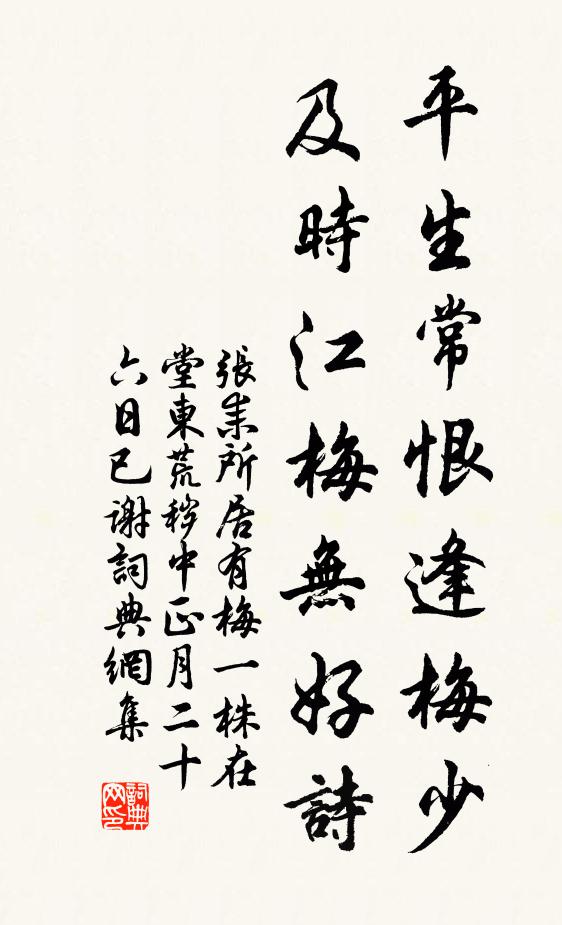 平生常恨逢梅少
及時江梅無好詩
張耒所居有梅一株在
堂東荒穢中正月二十
六日已謝詞典網集
詞典网印